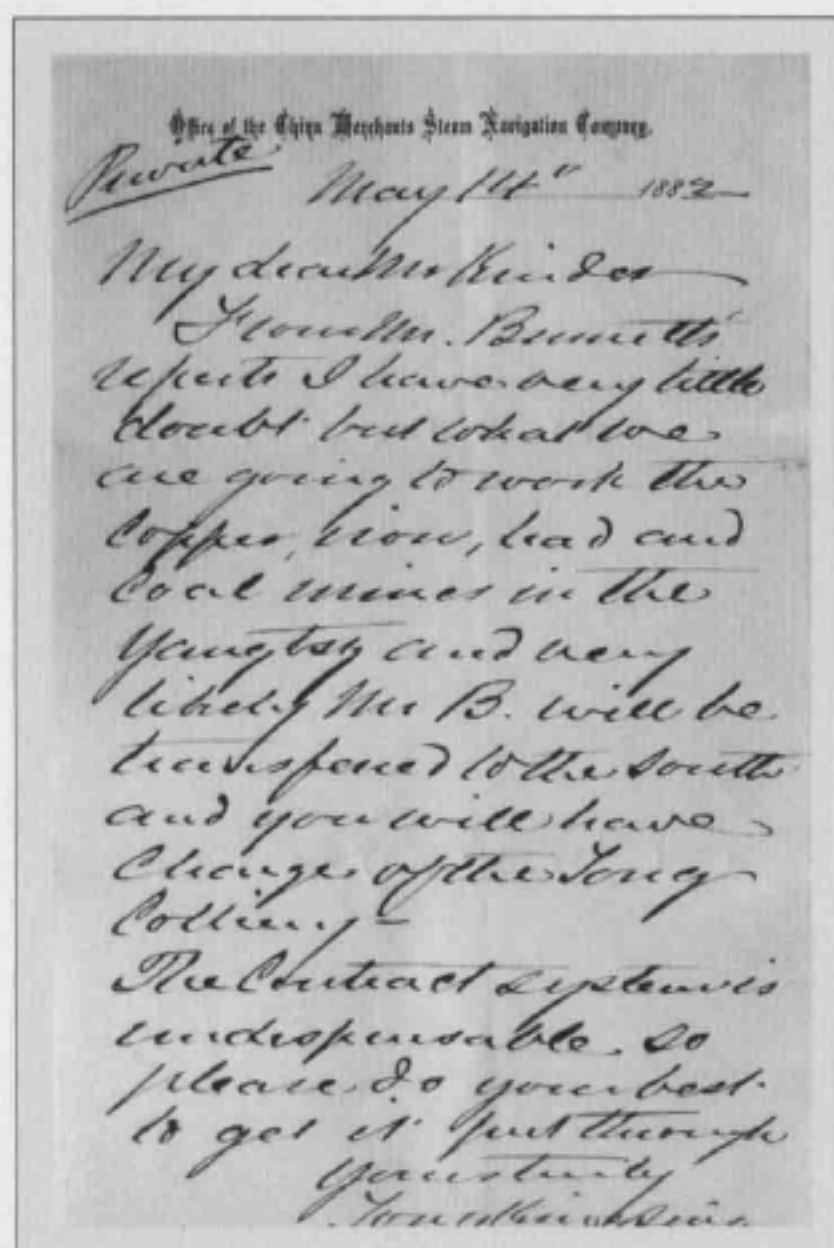 Office of the China Merchants Steam Navigation Company.
Private
May 14" 1882
My dear Mr Kinder
From Mr. Burnett's
reports I have very little
doubt but what we
are going to work the
Copper, iron, lead and
Coal mines in the
Yangtsy and very
likely Mr B. will be
transfered to the South
and you will have
Charge of the Tong
Colliery –
The Contract system is
indispensable. so
please do your best
to get it put through
Yours truly
Tong King Sing